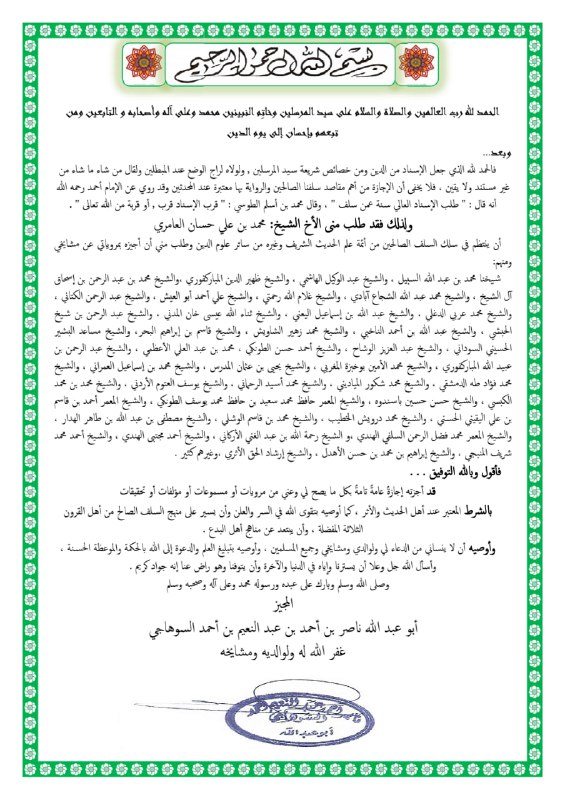 بسم الله الرحمن الرحيم
الحمد لله رب العالمين والصلاة والسلام على سيد المرسلين وخاتم النبيين محمد وعلى آله وأصحابه و التابعين ومن
تبعهم بإحسان إلى يوم الدين
وبعد...
فالحمد لله الذي جعل الإسناد من الدين ومن خصائص شريعة سيد المرسلين , ولولاه لراج الوضع عند المبطلين ولقال من شاء ما شاء من
غير مستند ولا يقين ، فلا يخفى أن الإجازة من أهم مقاصد سلفنا الصالحين والرواية بها معتبرة عند المحدثين وقد روي عن الإمام أحمد رحمه الله
أنه قال : " طلب الإسناد العالي سنة عمن سلف " ، وقال محمد بن أسلم الطوسي : " قرب الإسناد قرب , أو قربة من الله تعالى " .
ولذلك فقد طلب منى الأخ الشيخ: محمد بن علي حسان العامري
أن ينتظم في سلك السلف الصالحين من أئمة علم الحديث الشريف وغيره من سائر علوم الدين وطلب مني أن أجيزه بمروياتي عن مشايخي
ومنهم:
شيخنا محمد بن عبد الله السبيل ، والشيخ عبد الوكيل الهاشمي ، والشيخ ظهير الدين المباركفوري ,والشيخ محمد بن عبد الرحمن بن إسحاق
آل الشيخ ، والشيخ محمد عبد الله الشجاع آبادي , والشيخ غلام الله رحمتي ، والشيخ علي أحمد أبو العيش ، والشيخ عبد الرحمن الكتاني ,
والشيخ محمد عربي الدغلي , والشيخ عبد الله بن إسماعيل اليعني , والشيخ ثناء الله عيسى خان المدني , والشيخ عبد الرحمن بن شيخ
الحبشي ، والشيخ عبد الله بن أحمد الناخبي ، والشيخ محمد زهير الشاويش , والشيخ قاسم بن إبراهيم البحر, والشيخ مساعد البشير
الحسيني السوداني ، والشيخ عبد العزيز الوشاح ، والشيخ أحمد حسن الطوكي ، محمد بن عبد العلي الأعظمي ، والشيخ عبد الرحمن بن
عبيد الله المباركفوري , والشيخ محمد الأمين بوخبزة المغربي ، والشيخ يحيى بن عثمان المدرس ، والشيخ محمد بن إسماعيل العمراني , والشيخ
محمد فؤاد طه الدمشقي , والشيخ محمد شكور المياديني ، والشيخ محمد أسيد الرحماني , والشيخ يوسف العتوم الأردني ، والشيخ محمد بن محمد
الكبسي , والشيخ حسن حسين باسندوه ، والشيخ المعمر حافظ محمد سعيد بن حافظ محمد يوسف الطوكي ، والشيخ المعمر أحمد بن قاسم
بن علي اليقيني الحسني , والشيخ محمد درويش الخطيب ، والشيخ محمد بن قاسم الوشلي ، والشيخ مصطفى بن عبد الله بن طاهر الهدار ،
والشيخ المعمر محمد فضل الرحمن السلفي الهندي ,و الشيخ رحمة الله بن عبد الغني الأركاني ، والشيخ أحمد مجتبى الهندي ، والشيخ أحمد محمد
شريف المنبجي ، والشيخ إبراهيم بن محمد بن حسن الأهدل ، والشيخ إرشاد الحق الأثري ,وغيرهم كثير .
فأقول وبالله التوفيق . . .
قد أجزته إجازةً عامةً تامةً بكل ما يصح لي وعني من مرويات أو مسموعات أو مؤلفات أو تحقيقات
بالشرط المعتبر عند أهل الحديث والأثر ، كما أوصيه بتقوى الله في السر والعلن وأن يسير على منهج السلف الصالح من أهل القرون
الثلاثة المفضلة ، وأن يبتعد عن مناهج أهل البدع .
وأوصيه أن لا ينساني من الدعاء لي ولوالدي ومشايخي وجميع المسلمين ، وأوصيه بتبليغ العلم والدعوة إلى الله بالحكمة والموعظة الحسنة ,
وأسأل الله جل وعلا أن يسترنا وإياه في الدنيا والآخرة وأن يتوفنا وهو راض عنا إنه جواد كريم .
وصلى الله وسلم وبارك على عبده ورسوله محمد وعلى آله وصحبه وسلم
المجيز
أبو عبد الله ناصر بن أحمد بن عبد النعيم بن أحمد السوهاجي
غفر الله له ولوالديه ومشايخه
أبو عبد الله